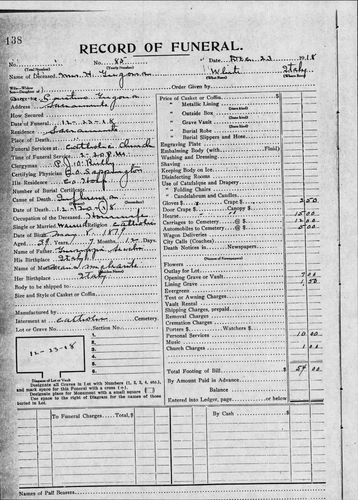 138
RECORD OF FUNERAL.
No. No. 82 Date Dec. 23 1918
(Total Number) (Yearly Number)
Name of Deceased Mrs. H. White Italy
(What Race) (Where Born)
Order Given by
Charge to
Address Sacramento
How Secured
Date of Funeral 12-22-18
Residence Sacramento
Place of Death
Funeral Services at Catholic Church
Time of Funeral Service 2-30 P.M.
Clergyman
Certifying Physician E. O. Sappington
His Residence Co. Hosp
Number of Burial Certificate
Cause of Death Influenza
Date of Death 12-20-18
Occupation of the Deceased Housewife
Single or Married Married Religion Catholic
Date of Birth May 1879
Aged 39 Years 7 Months Days
Name of Father
His Birthplace Italy
Name of Mother
Her Birthplace Italy
Body to be shipped to
Size and Style of Casket or Coffin
Manufactured by
Interment at Catholic Cemetery
Lot or Grave No. Section No.
12-22-18
1.
2.
3.
4.
5.
6.
Diagram of Lot or Vault
Designate all Graves in Lot with Numbers (1, 2, 3, 4, etc.),
and mark space for this Funeral with a cross (+).
Designate place for Monument with a small square
Use space to right of Diagram for the names of those
buried in Lot.
Price of Casket or Coffin
" Metallic Lining
" Outside Box
" Grave Vault
" Burial Robe
" Burial Slippers and Hose
Engraving Plate
Embalming Body (with Fluid)
Washing and Dressing
Shaving
Keeping Body on Ice
Disinfecting Rooms
Use of Catafalque and Drapery
" Folding Chairs
" Candelabrum and Candles
Gloves $ Crape $ 2 50
Door Crape $ Canopy $
Hearse 15 00
Carriages to Cemetery 12 00
Automobiles to Cemetery 5 00
Wagon Deliveries
City Calls (Coaches)
Death Notices in Newspapers
Flowers
Outlay for Lot
Opening Grave or Vault 7 00
Lining Grave 1 50
Evergreen
Tent or Awning Charges
Vault Rental
Shipping Charges, prepaid
Removal Charges
Cremation Charges
Porters $ Watchers $
Personal Services 10 00
Music
Church Charges 1 00
Total Footing of Bill $ 54 00
By Amount Paid in Advance
Balance
Entered into Ledger, page or below
To Funeral Charges, Total, $ By Cash $
Names of Pall Bearers